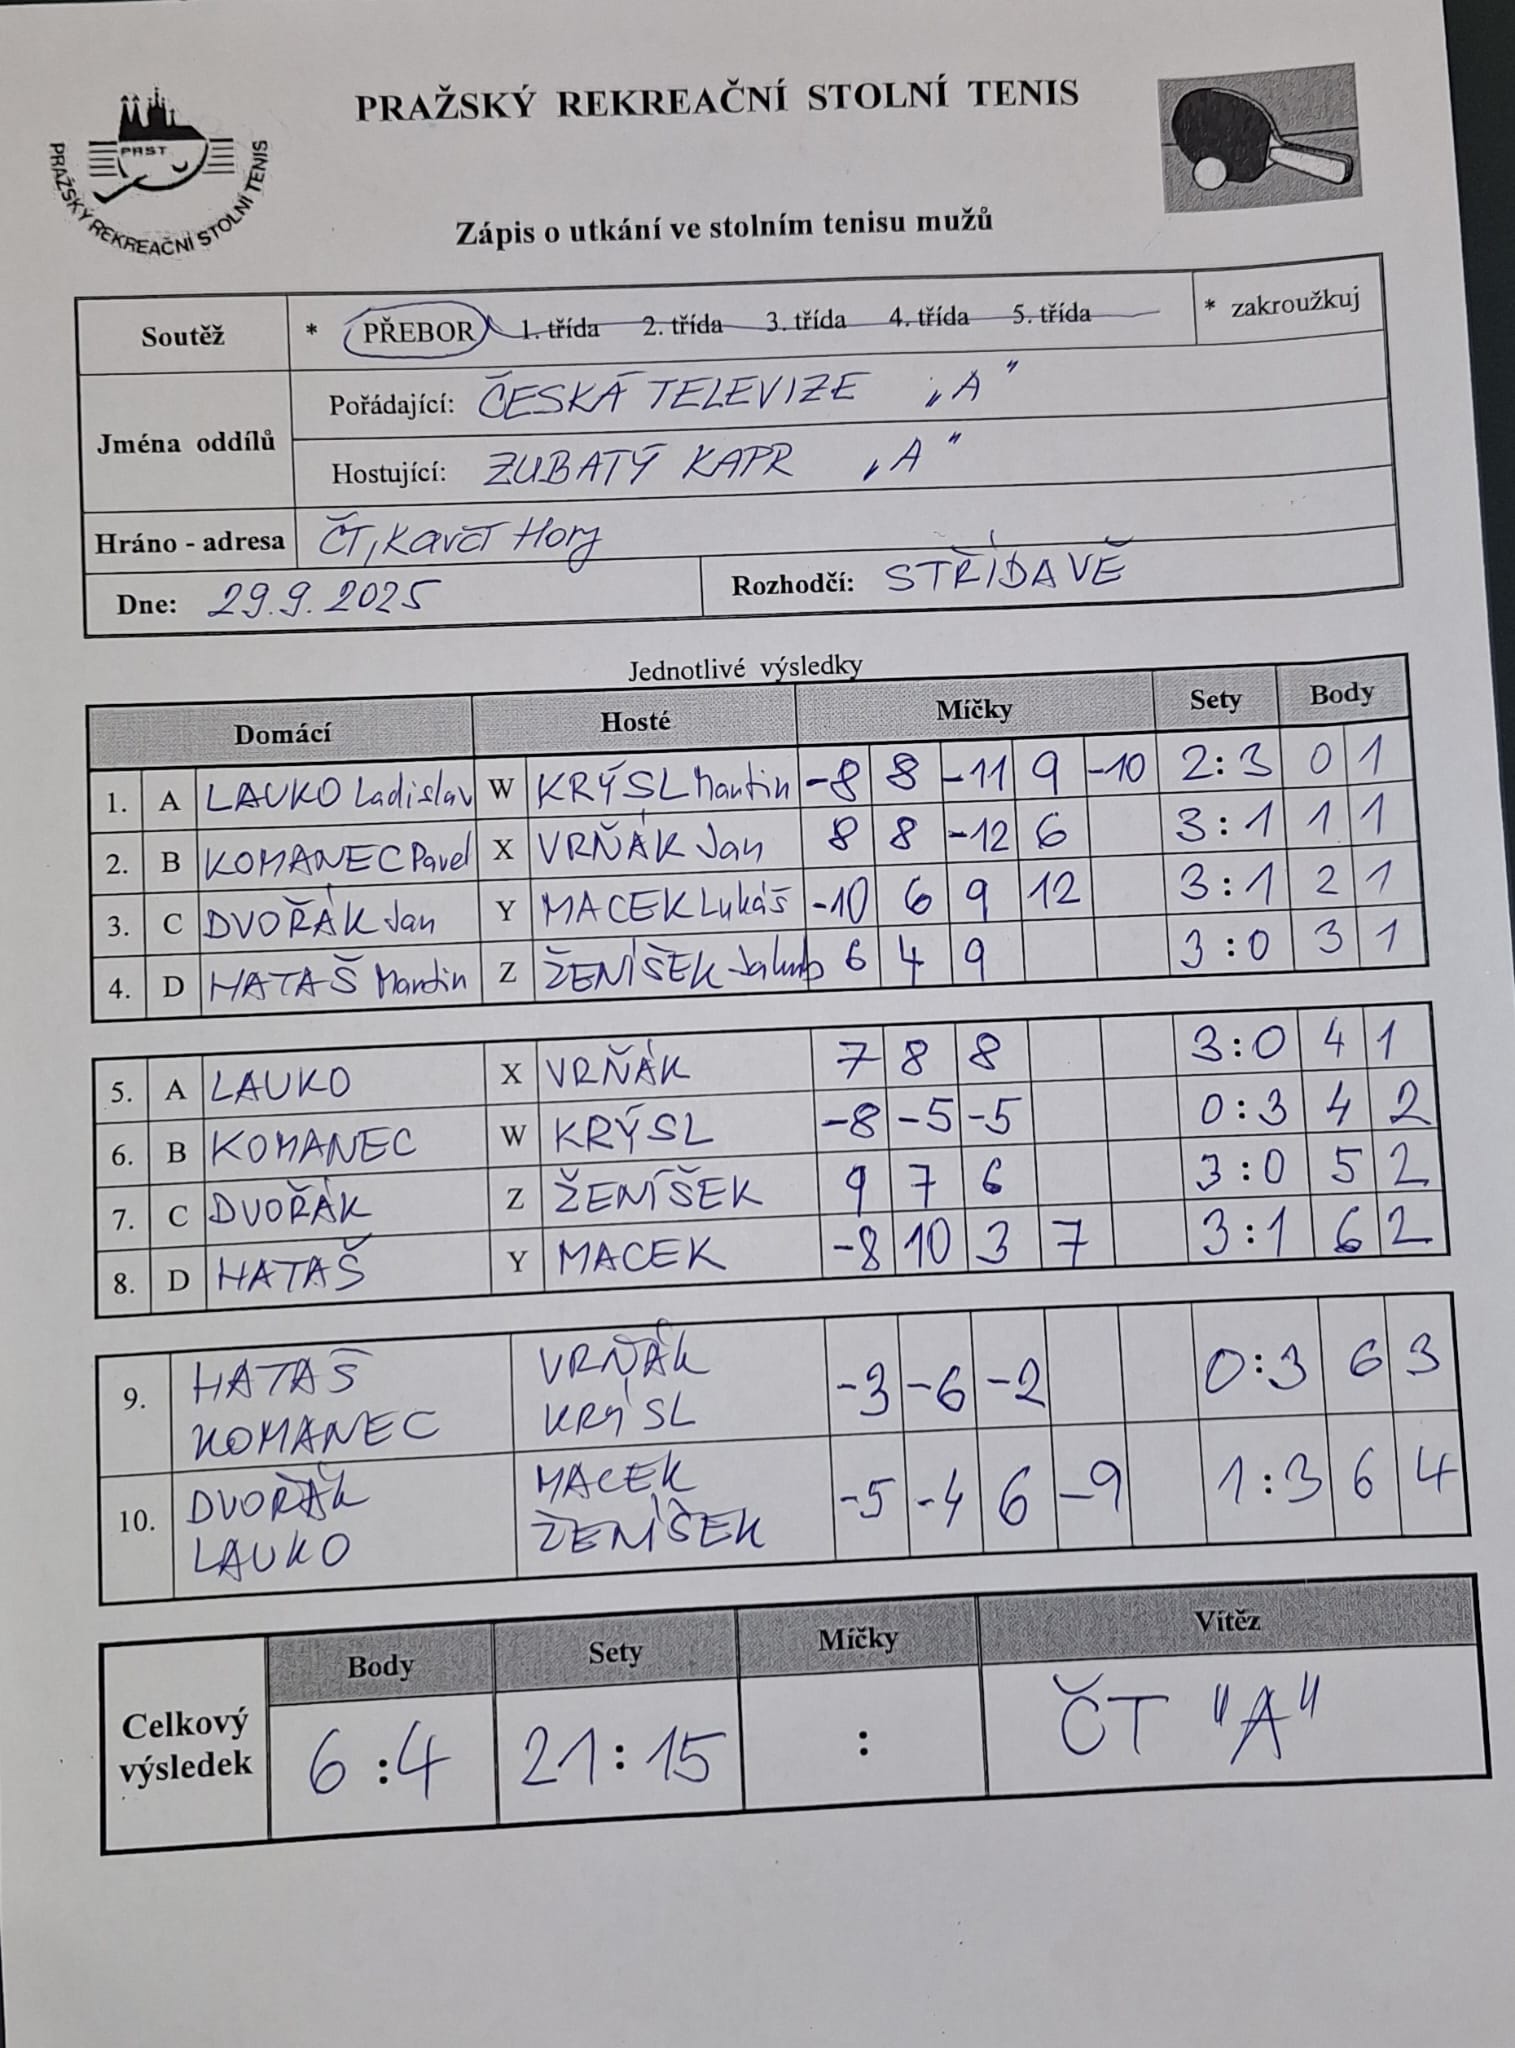 PRAŽSKÝ REKREAČNÍ STOLNÍ TENIS
PRST
PRAŽSKÝ REKREAČNÍ STOLNÍ TENIS
Zápis o utkání ve stolním tenisu mužů
Soutěž * PŘEBOR 1. třída 2. třída 3. třída 4. třída 5. třída * zakroužkuj
Jména oddílů
Pořádající: ČESKÁ TELEVIZE „A"
Hostující: ZUBATÝ KAPR „A"
Hráno - adresa ČT, Kavčí Hory
Dne: 29.9.2025 Rozhodčí: STŘÍDAVĚ
Jednotlivé výsledky
Domácí Hosté Míčky Sety Body
1. A LAUKO Ladislav W KRÝSL Martin -8 8 -11 9 -10 2:3 0 1
2. B KOMANEC Pavel X VRŇÁK Jan 8 8 -12 6 3:1 1 1
3. C DVOŘÁK Jan Y MACEK Lukáš -10 6 9 12 3:1 2 1
4. D HATAŠ Martin Z ŽENÍŠEK Jakub 6 4 9 3:0 3 1
5. A LAUKO X VRŇÁK 7 8 8 3:0 4 1
6. B KOMANEC W KRÝSL -8 -5 -5 0:3 4 2
7. C DVOŘÁK Z ŽENÍŠEK 9 7 6 3:0 5 2
8. D HATAŠ Y MACEK -8 10 3 7 3:1 6 2
9. HATAŠ VRŇÁK -3 -6 -2 0:3 6 3
KOMANEC KRÝSL
10. DVOŘÁK MACEK -5 -4 6 -9 1:3 6 4
LAUKO ŽENÍŠEK
Celkový výsledek
Body Sety Míčky Vítěz
6:4 21:15 : ČT "A"